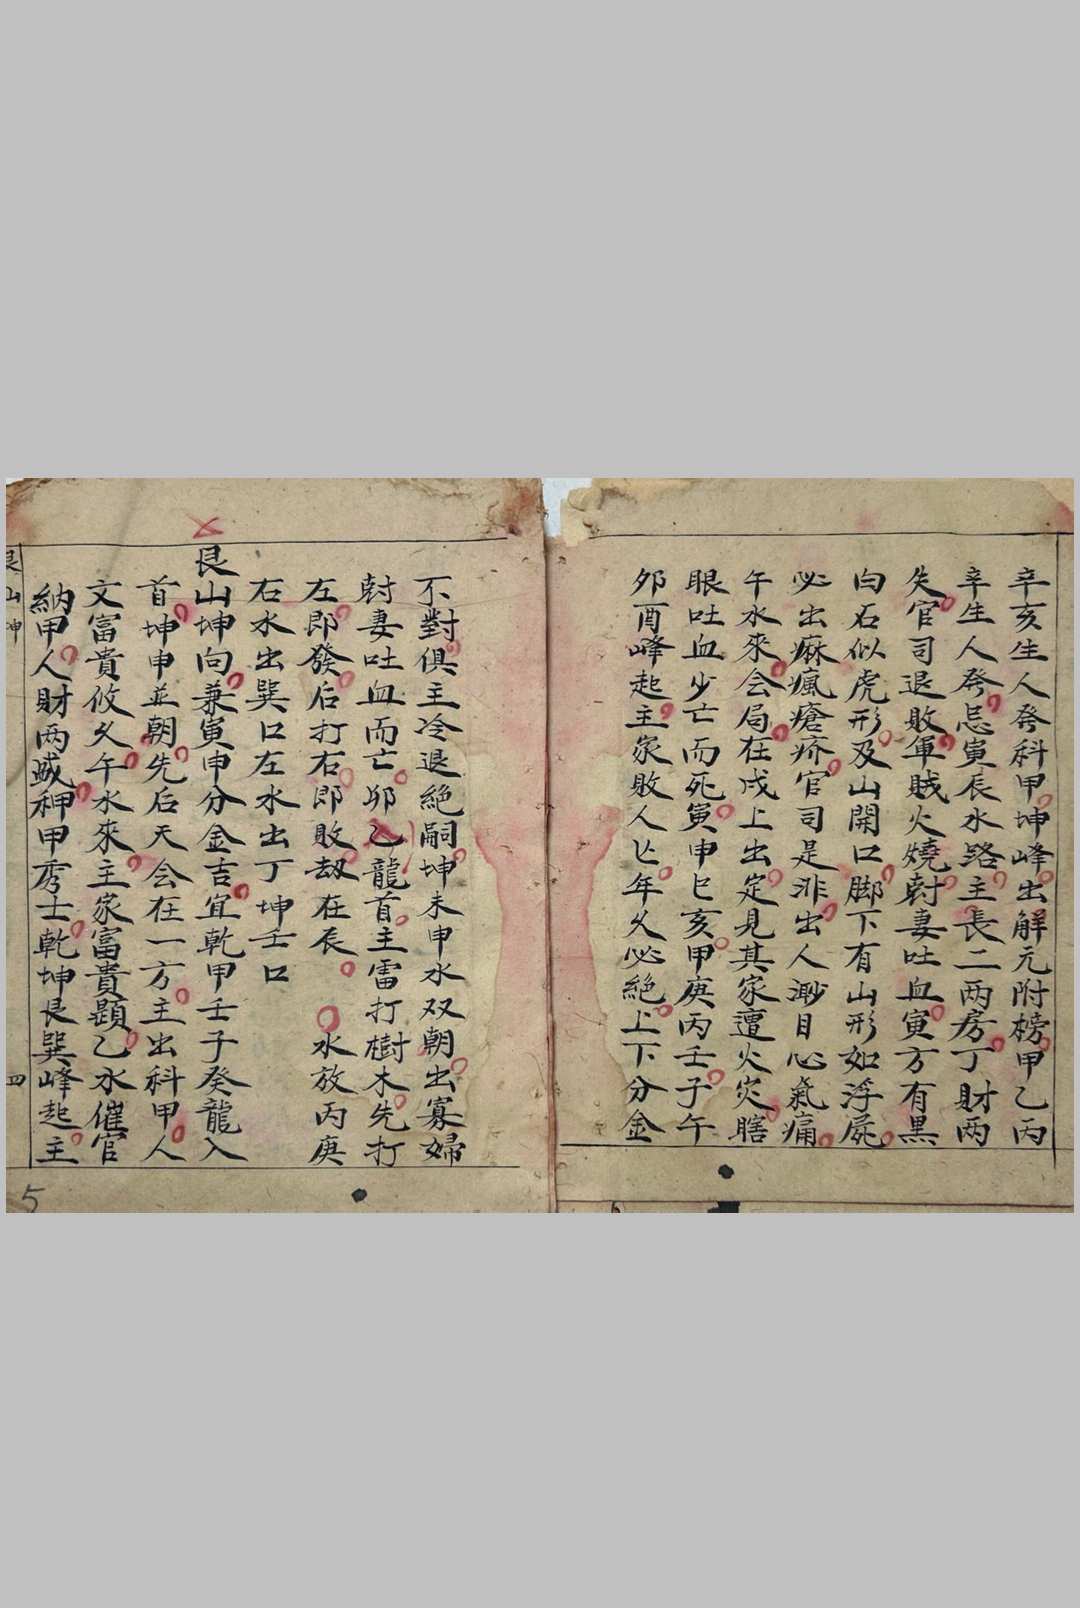 辛亥生人癹科甲坤峰出解元附榜甲乙丙
辛生人癹忌寅辰水路主長二两房丁財两
失官司退敗軍賊火燒尅妻吐血寅方有黑
白石似虎形及山開口脚下有山形如浮屍
必出麻瘋瘡疥官司是非出人渺目心氣痛
午水來会局在戌上出定見其家遭火災瞎
眼吐血少亡而死寅申巳亥甲庚丙壬子午
夘酉峰起主家敗人亡年久必絕上下分金
不對俱主冷退絕嗣坤未申水双朝出寡婦
尅妻吐血而亡夘乙龍首主雷打樹木先打
左即發后打右即敗劫在辰 水放丙庚
右水出巽口左水出丁坤壬口
艮山坤向兼寅申分金吉宜乾甲壬子癸龍入
首坤申並朝先后天会在一方主出科甲人
文富貴攸久午水來主家富貴題乙水催官
納甲人財两盛秤甲秀士乾坤艮巽峰起主
艮山坤
四
5